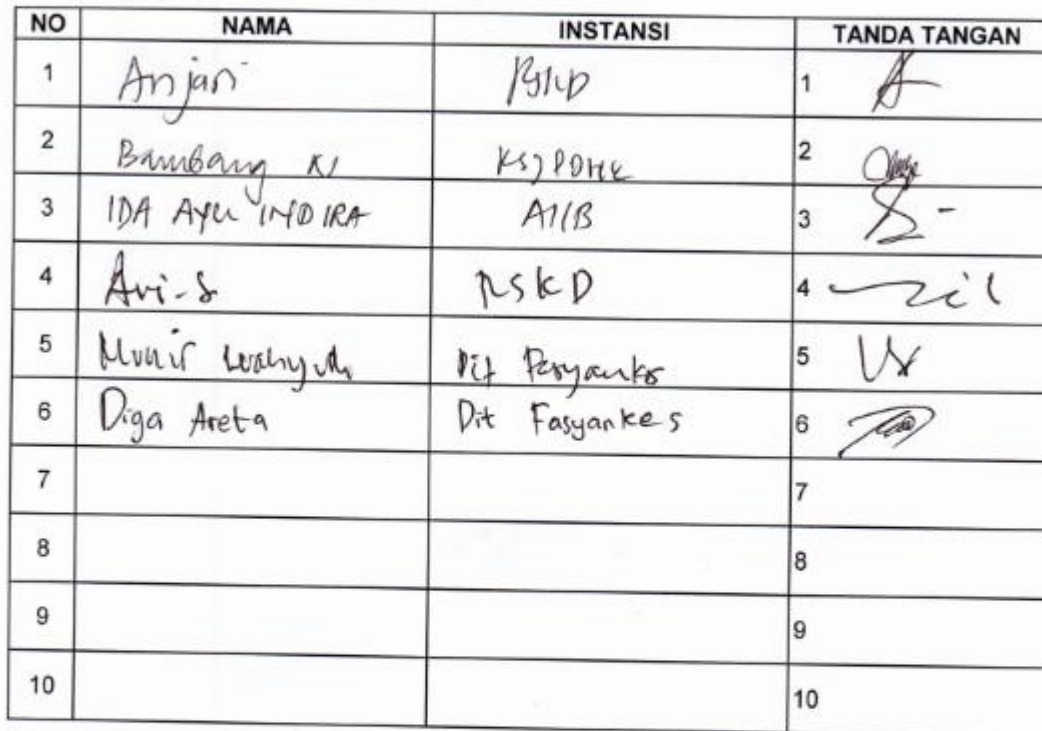 NO NAMA INSTANSI TANDA TANGAN
1 Anjari 1
2 Bambang 2
3 IDA AYU INDIRA AIIB 3
4 Ari.S RSKD 4
5 Munir Wahyudi Dit Fasyankes 5
6 Diga Areta Dit Fasyankes 6
7 7
8 8
9 9
10 10